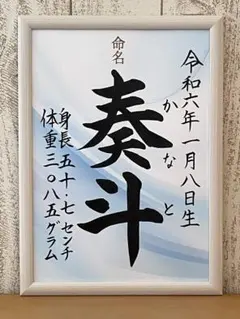 令和六年一月八日生
命名
奏斗
かなと
身長五十・七センチ
体重三〇八五グラム